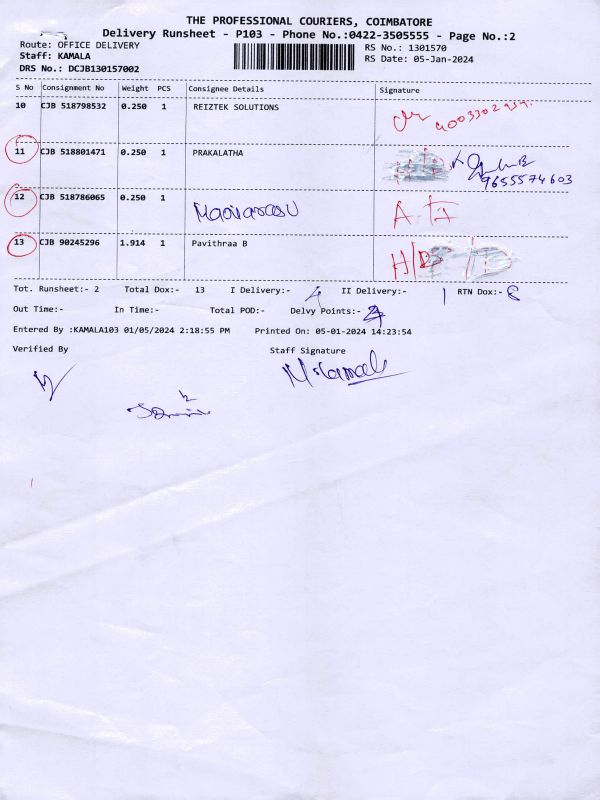 THE PROFESSIONAL COURIERS, COIMBATORE
Delivery Runsheet - P103 - Phone No.:0422-3505555 - Page No.:2
Route: OFFICE DELIVERY
RS No.: 1301570
Staff: KAMALA
RS Date: 05-Jan-2024
DRS No.: DCJB130157002
S No Consignment No Weight PCS Consignee Details Signature
10 CJB 518798532 0.250 1 REIZTEK SOLUTIONS
11 CJB 518801471 0.250 1 PRAKALATHA
9655574603
12 CJB 518786065 0.250 1
13 CJB 90245296 1.914 1 Pavithraa B
Tot. Runsheet:- 2 Total Dox:- 13 I Delivery:- 4 II Delivery:- 1 RTN Dox:- 8
Out Time:- In Time:- Total POD:- Delvy Points:-
Entered By :KAMALA103 01/05/2024 2:18:55 PM Printed On: 05-01-2024 14:23:54
Verified By Staff Signature